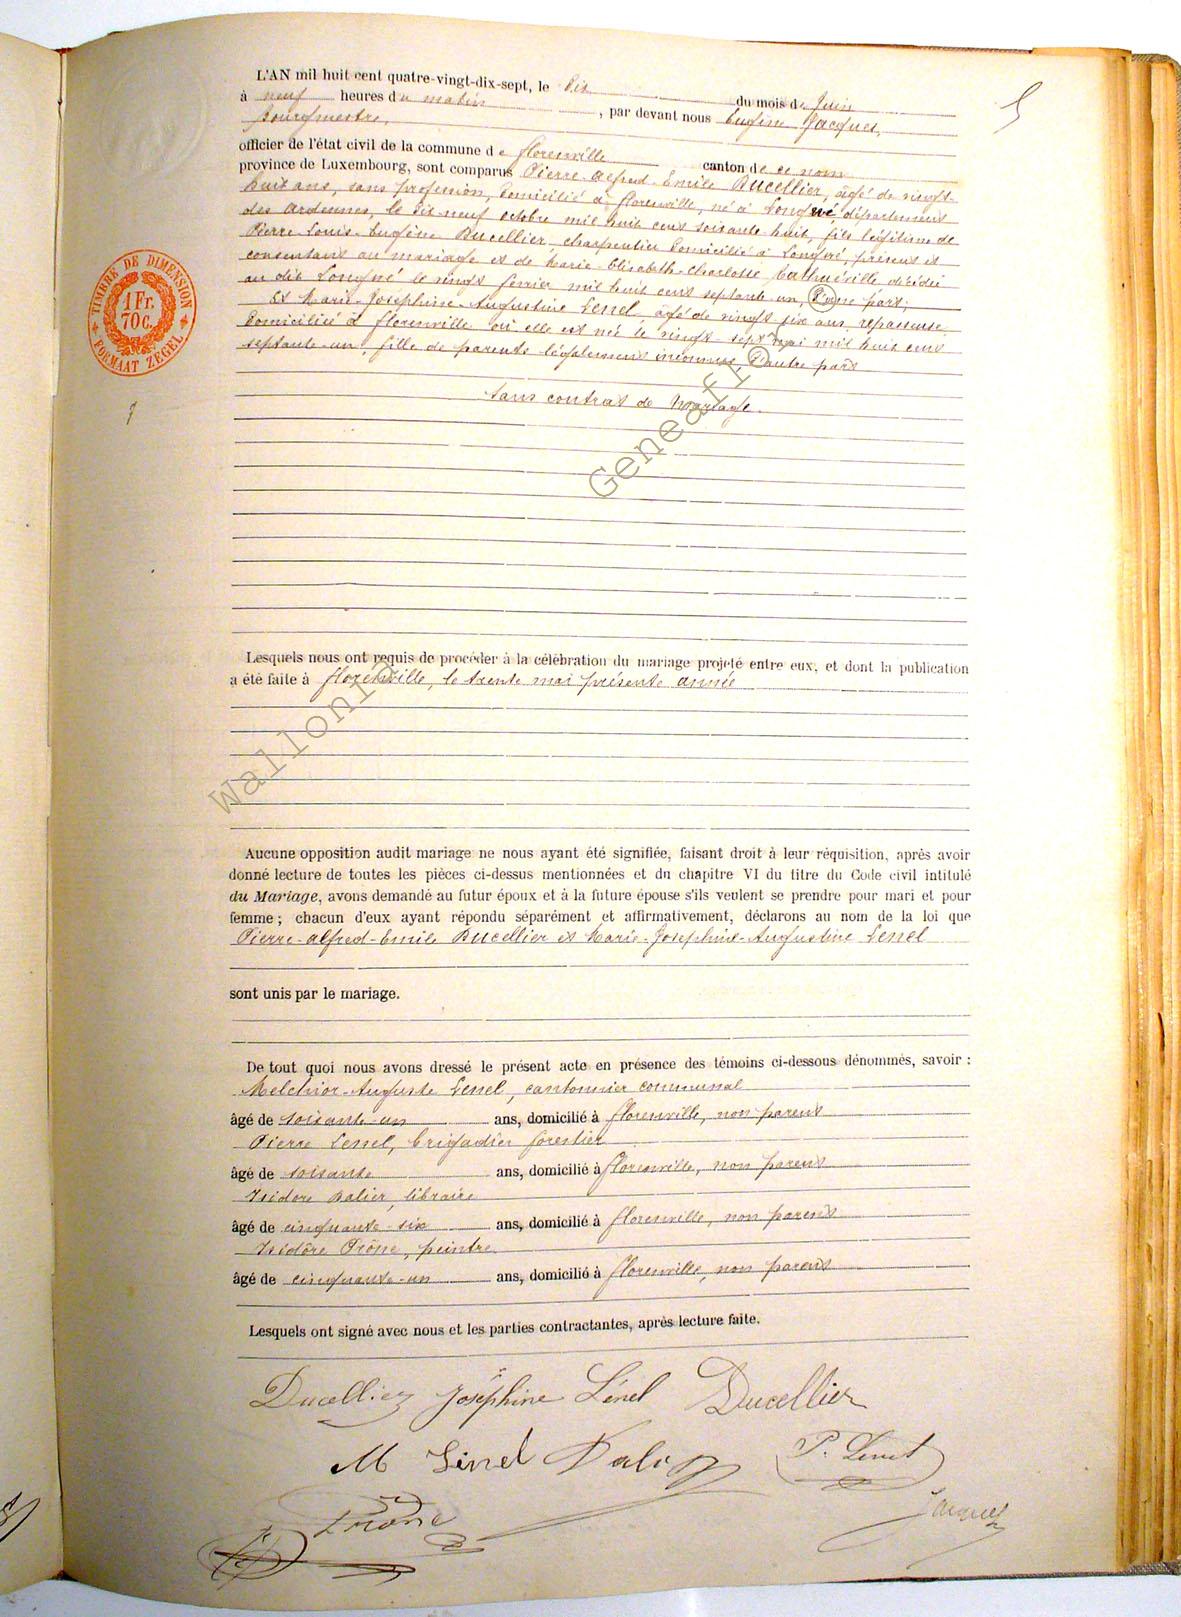 L'AN mil huit cent quatre-vingt-dix-sept, le Dix du mois de Juin
à neuf heures du matin, par devant nous Eugène Jacques,
Bourgmestre,
officier de l'état civil de la commune de Florenville canton de ce nom
province de Luxembourg, sont comparus Pierre-Alfred-Emile Ducellier, âgé de vingt-
huit ans, sans profession, domicilié à Florenville, né à Longwé, département
des Ardennes, le dix-neuf octobre mil huit cent soixante-huit, fils légitime de
Pierre-Louis-Eugène Ducellier, charpentier domicilié à Longwé, présent et
consentant au mariage et de Marie-Elisabeth-Charlotte décédée
au dit Longwé le vingt février mil huit cent septante un, D'une part;
Et Marie-Joséphine-Augustine Lenel, âgé de vingt-six ans, repasseuse
domiciliée à Florenville où elle est née le vingt-sept mai mil huit cent
septante-un, fille de parents légalement inconnus, D'autre part
Sans contrat de Mariage.
Lesquels nous ont requis de procéder à la célébration du mariage projeté entre eux, et dont la publication
a été faite à Florenville, le trente mai présente année
Aucune opposition audit mariage ne nous ayant été signifiée, faisant droit à leur réquisition, après avoir
donné lecture de toutes les pièces ci-dessus mentionnées et du chapitre VI du titre du Code civil intitulé
du Mariage, avons demandé au futur époux et à la future épouse s'ils veulent se prendre pour mari et pour
femme ; chacun d'eux ayant répondu séparément et affirmativement, déclarons au nom de la loi que
Pierre-Alfred-Emile Ducellier et Marie-Joséphine-Augustine Lenel
sont unis par le mariage.
De tout quoi nous avons dressé le présent acte en présence des témoins ci-dessous dénommés, savoir :
Melchior-Auguste Lenel, cantonnier communal
âgé de soixante-un ans, domicilié à Florenville, non parent
Pierre Lenel, brigadier forestier
âgé de soixante ans, domicilié à Florenville, non parent
Isidore Dalier, libraire
âgé de cinquante-six ans, domicilié à Florenville, non parent
Isidore Prône, peintre
âgé de cinquante-un ans, domicilié à Florenville, non parent
Lesquels ont signé avec nous et les parties contractantes, après lecture faite.
Ducellier Joséphine Lénel Ducellier
M Linel Dalier P. Lenel
Jacques
TIMBRE DE DIMENSION
1 Fr.
70 c.
FORMAAT ZEGEL
Wallonia